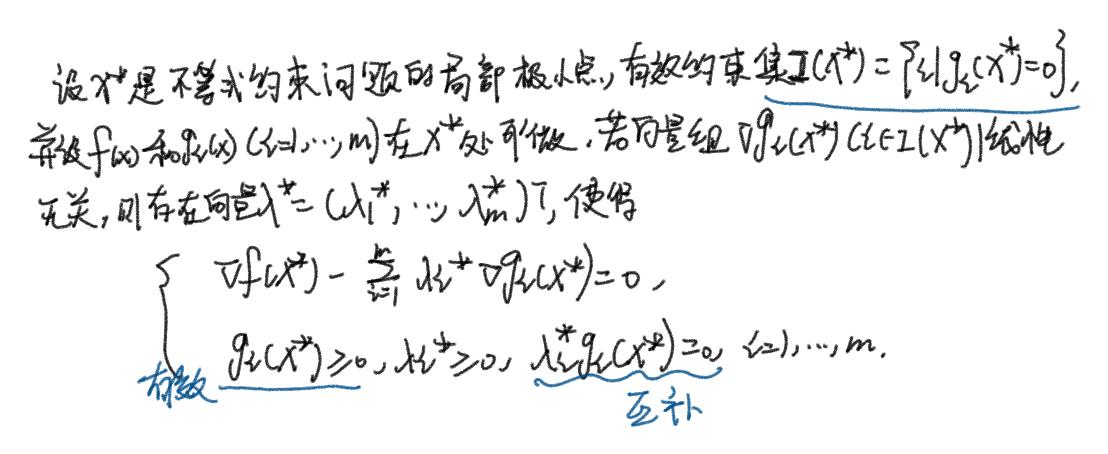 设x*是不等式约束问题的局部极小点,有效约束集I(x*)={i|gi(x*)=0},
并设f(x)和gi(x)(i=1,…,m)在x*处可微.若向量组∇gi(x*)(i∈I(x*))线性
无关,则存在向量λ*=(λ1*,…,λm*)T,使得
∇f(x*)-∑i=1m λi*∇gi(x*)=0,
gi(x*)≥0,λi*≥0,λi*gi(x*)=0,i=1,…,m.
有效
互补